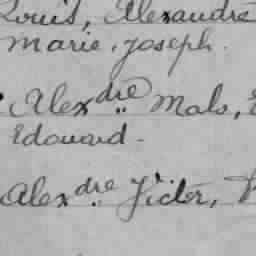 Louis, Alexandre
Marie, Joseph.
Alexdre Malo,
Edouard -
Alexdre Victor,